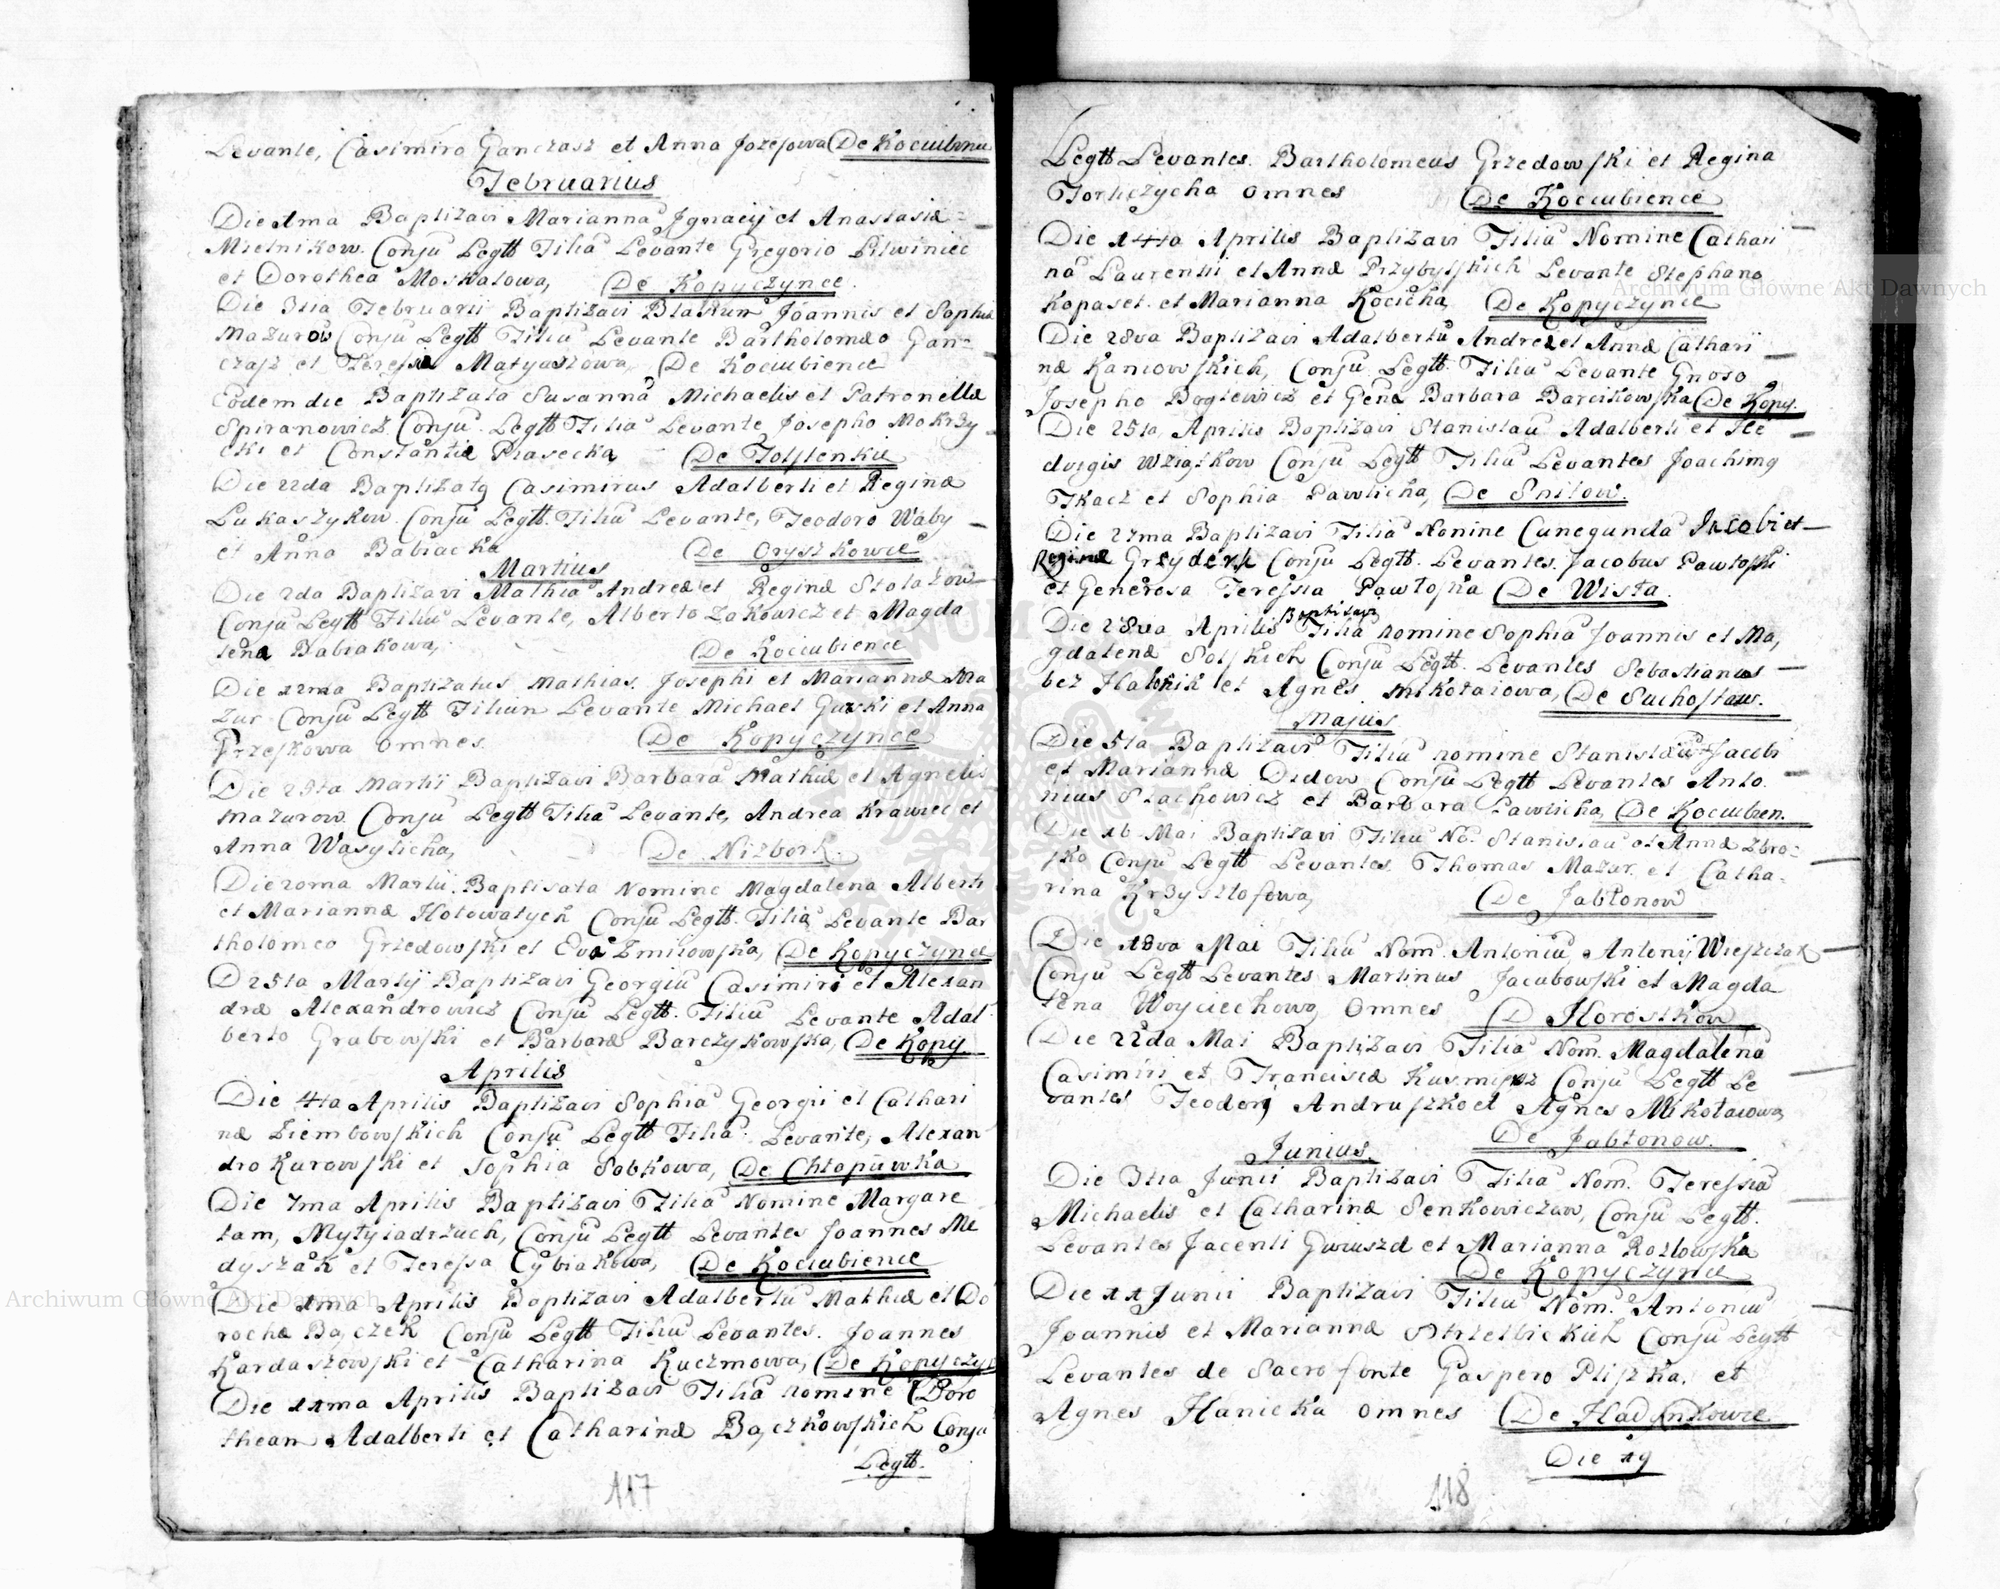 Levante, Casimiro Ganczasz et Anna Jozefowa De Kociubince
Februarius
Die 1ma Baptizavi Marianna Jgnacij et Anastasiæ
Mielnikow Conju Legtt Filia Levante Gregorio Litwiniec
et Dorothea Moskalowa, De Kopyczynce
Die 3tia Februarii Baptizavi Blasium Joannis et Sophia
Mazurow Conju Legtt Filiu Levante Bartholomæo Gan-
czasz et Teressa Matyaszowa De Kociubience
Eodem die Baptizata Susanna Michaelis et Patronellæ
Spiranowicz Conju Legtt Filia Levante Josepho Mokrzy
cki et Constantia Piasecka De Tolstenkie
Die 22da Baptizatg Casimirus Adalberti et Reginæ
Lukaszykow Conju Legtt. Filiu Levante, Teodoro Waby
et Anna Babiacka De Oryszkowce
Martius
Die 2da Baptizavi Mathia Andreæ et Reginæ Stolarow
Conju Legtt Filiu Levante, Alberto Zakowicz et Magda
lena Babiakowa, De Kociubience
Die 12ma Baptizatus Mathias Josephi et Mariannæ Ma
zur Conju Legtt Filium Levante Michael Gurski et Anna
Przeskowa omnes De Kopyczynce
Die Martij Baptizavi Barbara Mathiæ et Agnetis
Mazurow Conju Legtt Filia Levante, Andrea Krawiec et
Anna Wasylicha, De Nizbork
Die 20ma Martii Baptisata Nomine Magdalena Alberti
et Mariannæ Hotowatych Conju Legtt. Filia Levante Bar
tholomeo Grzedowski et Eva Zmirowska, De Kopyczynce
D 25ta Martij Baptizavi Georgiu Casimiri et Alexan
dræ Alexandrowicz Conju Legtt. Filiu Levante Adal
berto Grabowski et Barbaræ Barczykowska, De Kopy
Aprilis
Die 4ta Aprilis Baptizavi Sophia Georgii et Cathari
næ Ziembowskich Conju Legtt Filia Levante, Alexan
dro Kurowski et Sophia Sobkowa, De Chlopuwka
Die 7ma Aprilis Baptizavi Filia Nomine Margare
tam, Mytyiadrzuch, Conju Legtt Levantes Joannes Me
dyszak et Teressa Cybiakowa, De Kociubience
Die 1ma Aprilis Baptizavi Adalbertu Mathiæ et Do
rotheæ Bączek Conju Legtt Filiu Levantes. Joannes
Kardaszowski et Catharina Kuczmowa, De Kopyczyn
Die 11ma Aprilis Baptizavi Filia nomine Doro
theam Adalberti et Catharinæ Bączkowskich Conju
Legtt.
117
Legtt Levantes. Bartholomeus Grzedowski et Regina
Torliczycha omnes De Kociubience
Die 14ta Aprilis Baptizavi Filia Nomine Cathari
na Laurentii et Annæ Przybylskich Levante Stephano
Kopaset. et Marianna Kocicha, De Kopyczynce
Die 28va Baptizavi Adalbertu Andreæ et Annæ Cathari
næ Kancowskich, Conju Legtt. Filiu Levante Gnoso
Josepho Boglewicz et Genæ Barbara Barcikowska De Kopy.
Die 25ta Aprilis Baptizavi Stanislau Adalberti et He
dvigis Wziątkow Conju Legtt Filiu Levantes Joachimg
Tkacz et Sophia Pawlicha, De Snilow.
Die 27ma Baptizavi Filia Nomine Cunegunda Jacobi et
Reginæ Grzyderk Conju Legtt. Levantes. Jacobus Pawloski
et Generosa Teressia Pawloska De Wista.
Baptizavi
Die 28va Aprilis Filia nomine Sophia Joannis et Ma,
gdalenæ Solskich Conju Legtt. Levantes Sebastianus
bez Halonik et Agnes Mikolaiowa, De Suchostaw.
Majus
Die 5ta Baptizavi Filiu nomine Stanislau Jacobi
et Mariannæ Dudow Conju Legtt Levantes Anto.
nius Stachowicz et Barbara Pawlicha, De Kociubien.
Die 16 Mai Baptizavi Filiu No. Stanislau et Annæ Zbro-
sko Conju Legtt Levantes. Thomas Mazur et Catha-
rina Krzysztofowa, De Jablonow
Die 18va Mai Filiu Nom. Antoniu Antonij Wieszczak
Conju Legtt Levantes Martinus Jacubowski et Magda
lena Woyciechowa, omnes D Horostkow
Die 22da Mai Baptizavi Filia Nom. Magdalena
Casimiri et Franciscæ Kusmierz Conju Legtt Le
vantes Teodorg Andruszko et Agnes Mikolaiowa,
De Jablonow.
Junius.
Die 3tia Junii Baptizavi Filia Nom. Teressia
Michaelis et Catharinæ Senkowiczow, Conju Legtt.
Levantes Jacenti Gwuszd et Marianna Rozlowska
De Kopyczynce
Die 11 Junii Baptizavi Filiu Nom. Antoniu
Joannis et Mariannæ Strzelbickich Conju Legtt
Levantes de Sacro fonte Gaspero Pliszka, et
Agnes Hanicka omnes De Hadynkowce
Die 19
118
Archiwum Główne Akt Dawnych
Archiwum Główne Akt Dawnych